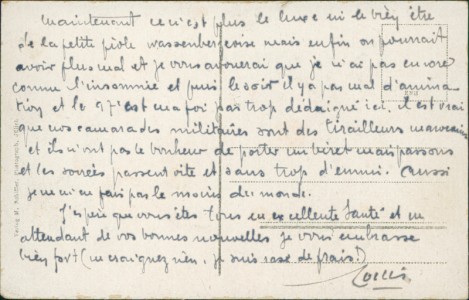 Maintenant ce n'est plus le luxe ni le bien être
de la petite piole wassenbergeoise mais enfin on pourrait
avoir plus mal et je vous avouerai que je n'ai pas encore
connu l'insomnie et puis le soir il y a pas mal d'anima
tion et le 97 est ma foi pas trop dédaigné ici, il est vrai
que nos camarades militaires sont des tirailleurs marocains
et ils n'ont pas le bonheur de porter un béret mais passons
et les soirées passent vite et sans trop d'ennui. Aussi
je ne m'en fais pas le moins du monde.
J'espère que vous êtes tous en excellente santé et en
attendant de vos bonnes nouvelles je vous embrasse
bien fort (ne craignez rien, je suis rasé de frais!)